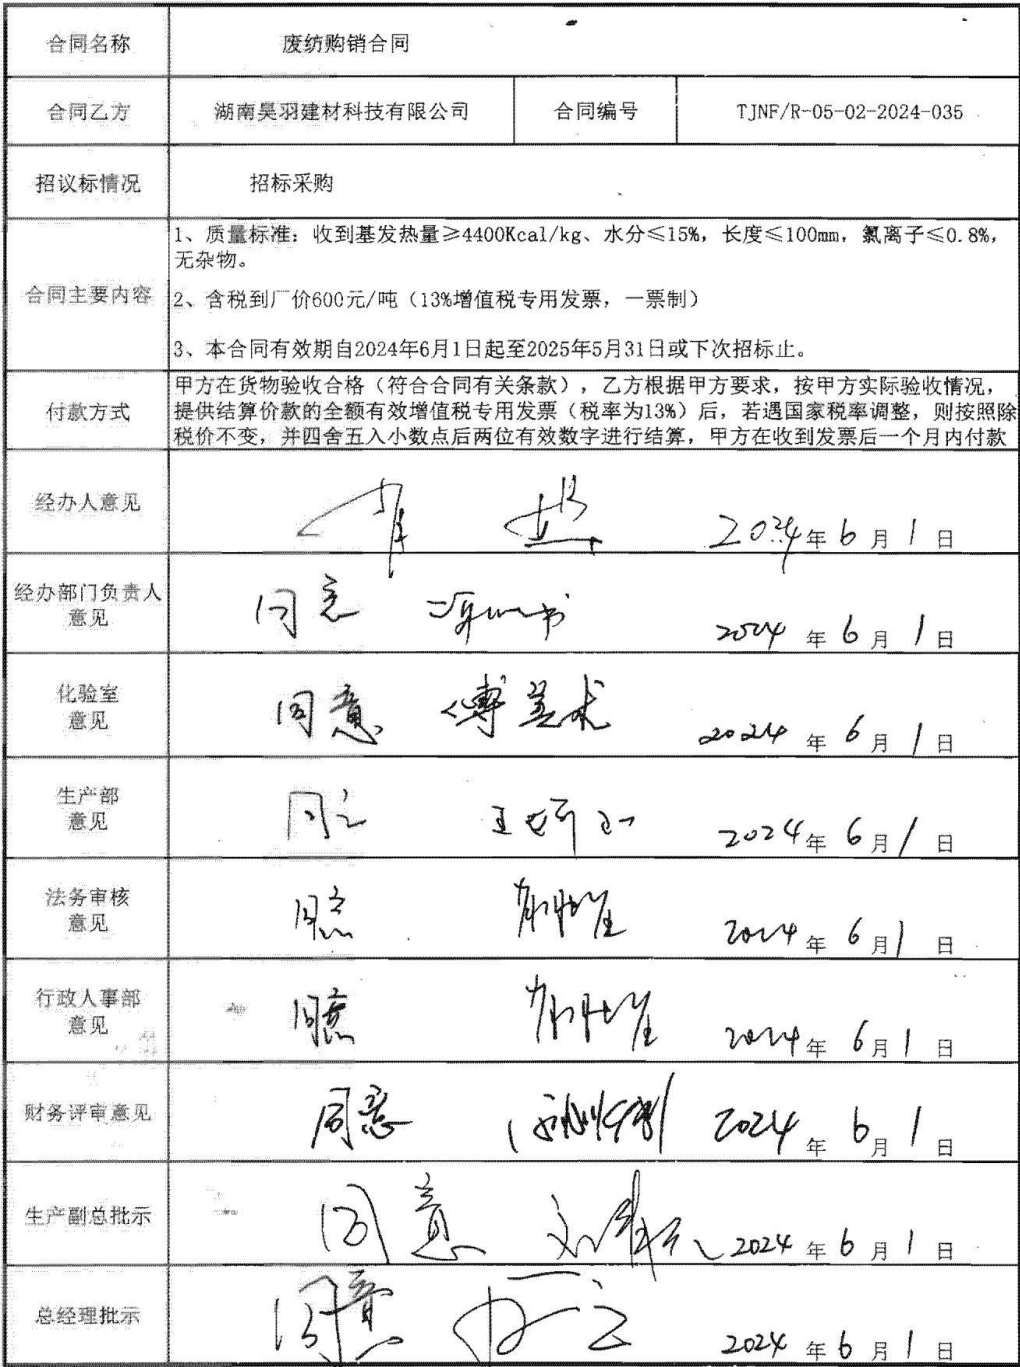 合同名称 废纺购销合同
合同乙方 湖南昊羽建材科技有限公司 合同编号 TJNF/R-05-02-2024-035
招议标情况 招标采购
合同主要内容
1、质量标准：收到基发热量≥4400Kcal/kg、水分≤15%，长度≤100mm，氯离子≤0.8%，
无杂物。
2、含税到厂价600元/吨（13%增值税专用发票，一票制）
3、本合同有效期自2024年6月1日起至2025年5月31日或下次招标止。
付款方式
甲方在货物验收合格（符合合同有关条款），乙方根据甲方要求，按甲方实际验收情况，
提供结算价款的全额有效增值税专用发票（税率为13%）后，若遇国家税率调整，则按照除
税价不变，并四舍五入小数点后两位有效数字进行结算，甲方在收到发票后一个月内付款
经办人意见 2024年6月1日
经办部门负责人
意见
同意 2024年6月1日
化验室
意见
同意 2024年6月1日
生产部
意见
同意 2024年6月1日
法务审核
意见
同意 2024年6月1日
行政人事部
意见
同意 2024年6月1日
财务评审意见 同意 2024年6月1日
生产副总批示 同意 2024年6月1日
总经理批示 同意 2024年6月1日